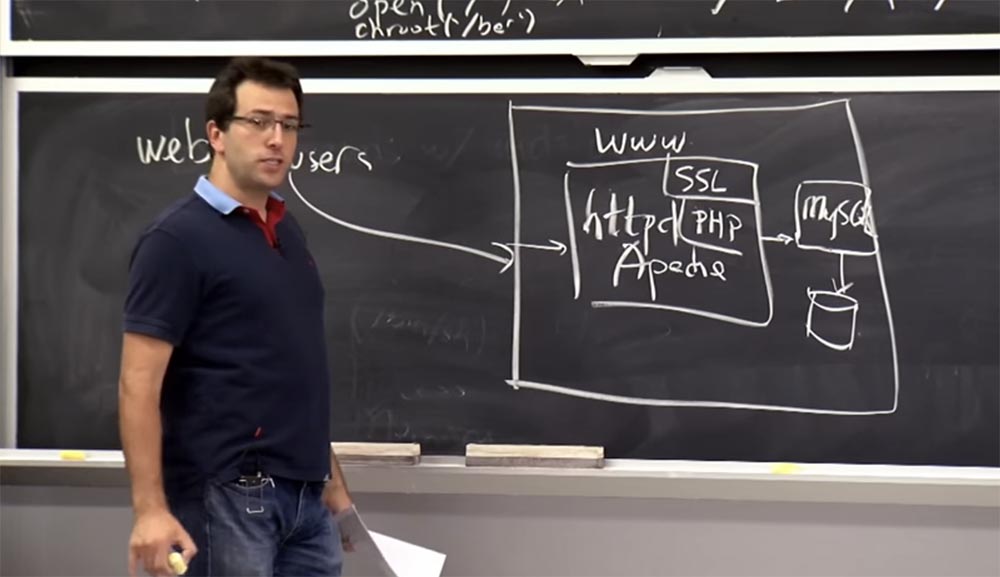 open(
chroot("/bar")
web users
www
SSL
httpd PHP
Apache
MySQL